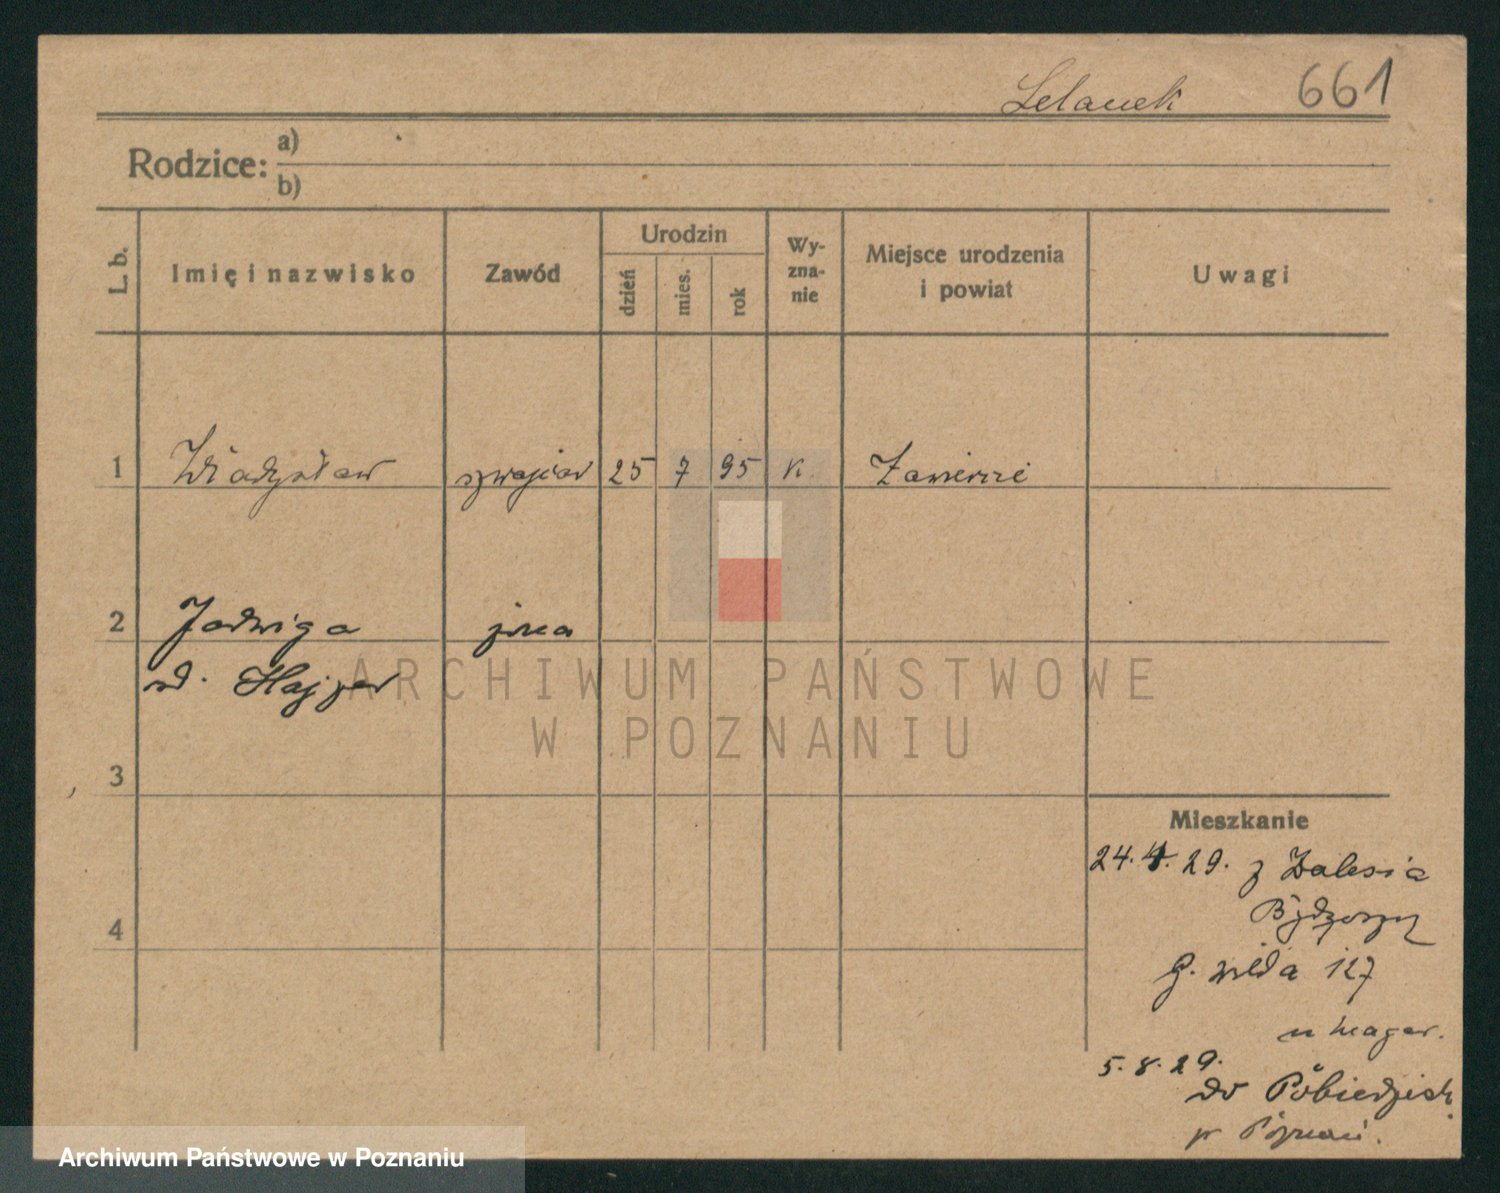 Lelanek 661
Rodzice: a)
b)
L. b. Imię i nazwisko Zawód Urodzin dzień mies. rok Wy-zna-nie Miejsce urodzenia i powiat Uwagi
1 Władysław szwajcar 25 7 95 k
2 Jadwiga żona
3
Mieszkanie
24. 4. 29. z Zalesia
4
G. Wilda 127
5. 8. 29.
do Pobiedzisk
p Poznań.
ARCHIWUM PAŃSTWOWE
W POZNANIU
Archiwum Państwowe w Poznaniu